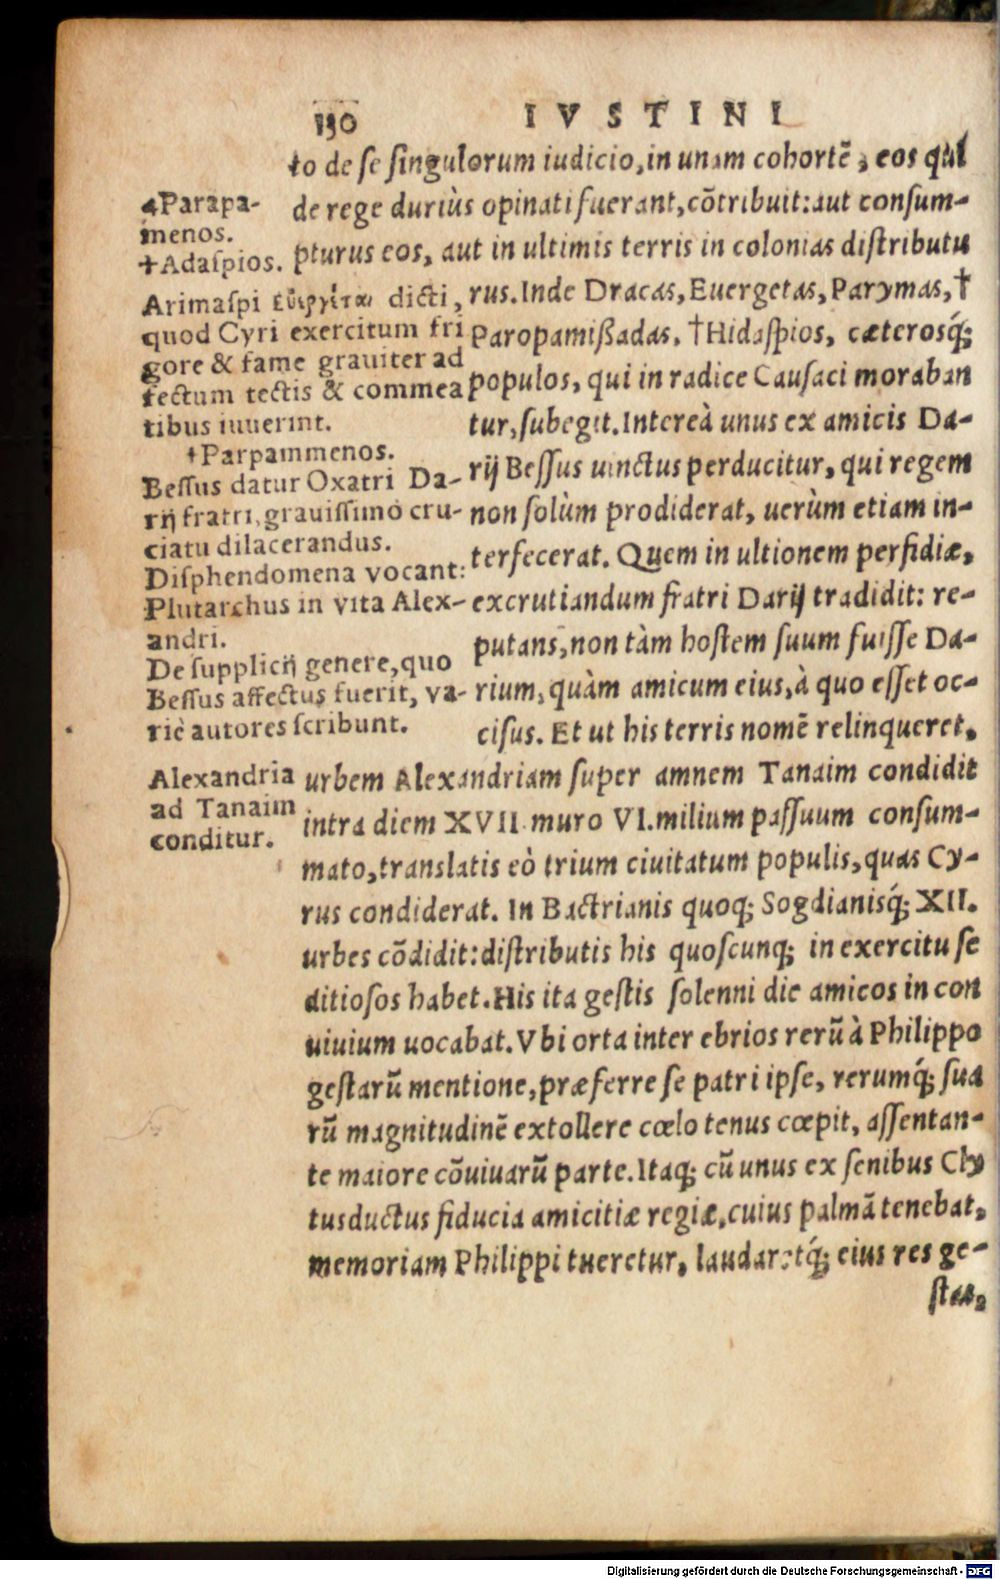 130
IVSTINI
to de se singulorum iudicio, in unam cohortē, eos qui
de rege duriùs opinati fuerant, cōtribuit: aut consum-
pturus eos, aut in ultimis terris in colonias distributu
rus. Inde Dracas, Euergetas, Parymas, †
Paropamißadas, †Hidaspios, cæterosq́;
populos, qui in radice Causaci moraban
tur, subegit. Intereà unus ex amicis Da-
rij Bessus uinctus perducitur, qui regem
non solùm prodiderat, uerùm etiam in-
terfecerat. Quem in ultionem perfidiæ,
excrutiandum fratri Darij tradidit: re-
putans, non tàm hostem suum fuisse Da-
rium, quàm amicum eius, à quo esset oc-
cisus. Et ut his terris nomē relinqueret,
urbem Alexandriam super amnem Tanaim condidit
intra diem XVII. muro VI. milium passuum consum-
mato, translatis eò trium ciuitatum populis, quas Cy-
rus condiderat. In Bactrianis quoq; Sogdianisq́; XII.
urbes cōdidit: distributis his quoscunq; in exercitu se
ditiosos habet. His ita gestis solenni die amicos in con
uiuium uocabat. Vbi orta inter ebrios rerū à Philippo
gestarū mentione, præferre se patri ipse, rerumq́; sua
rū magnitudinē extollere cœlo tenus cœpit, assentan-
te maiore cōuiuarū parte. Itaq; cū unus ex senibus Cly
tus ductus fiducia amicitiæ regiæ, cuius palmā tenebat,
memoriam Philippi tueretur, laudaretq́; eius res ge-
stas,
†Parapa-
menos.
†Adaspios.
Arimaspi εὐεργέται dicti,
quod Cyri exercitum fri
gore & fame grauiter ad
fectum tectis & commea
tibus iuuerint.
†Parpammenos.
Bessus datur Oxatri Da-
rij fratri, grauissimo cru-
ciatu dilacerandus.
Disphendomena vocant:
Plutarchus in vita Alex-
andri.
De supplicij genere, quo
Bessus affectus fuerit, va-
riè autores scribunt.
Alexandria
ad Tanaim
conditur.
Digitalisierung gefördert durch die Deutsche Forschungsgemeinschaft - DFG